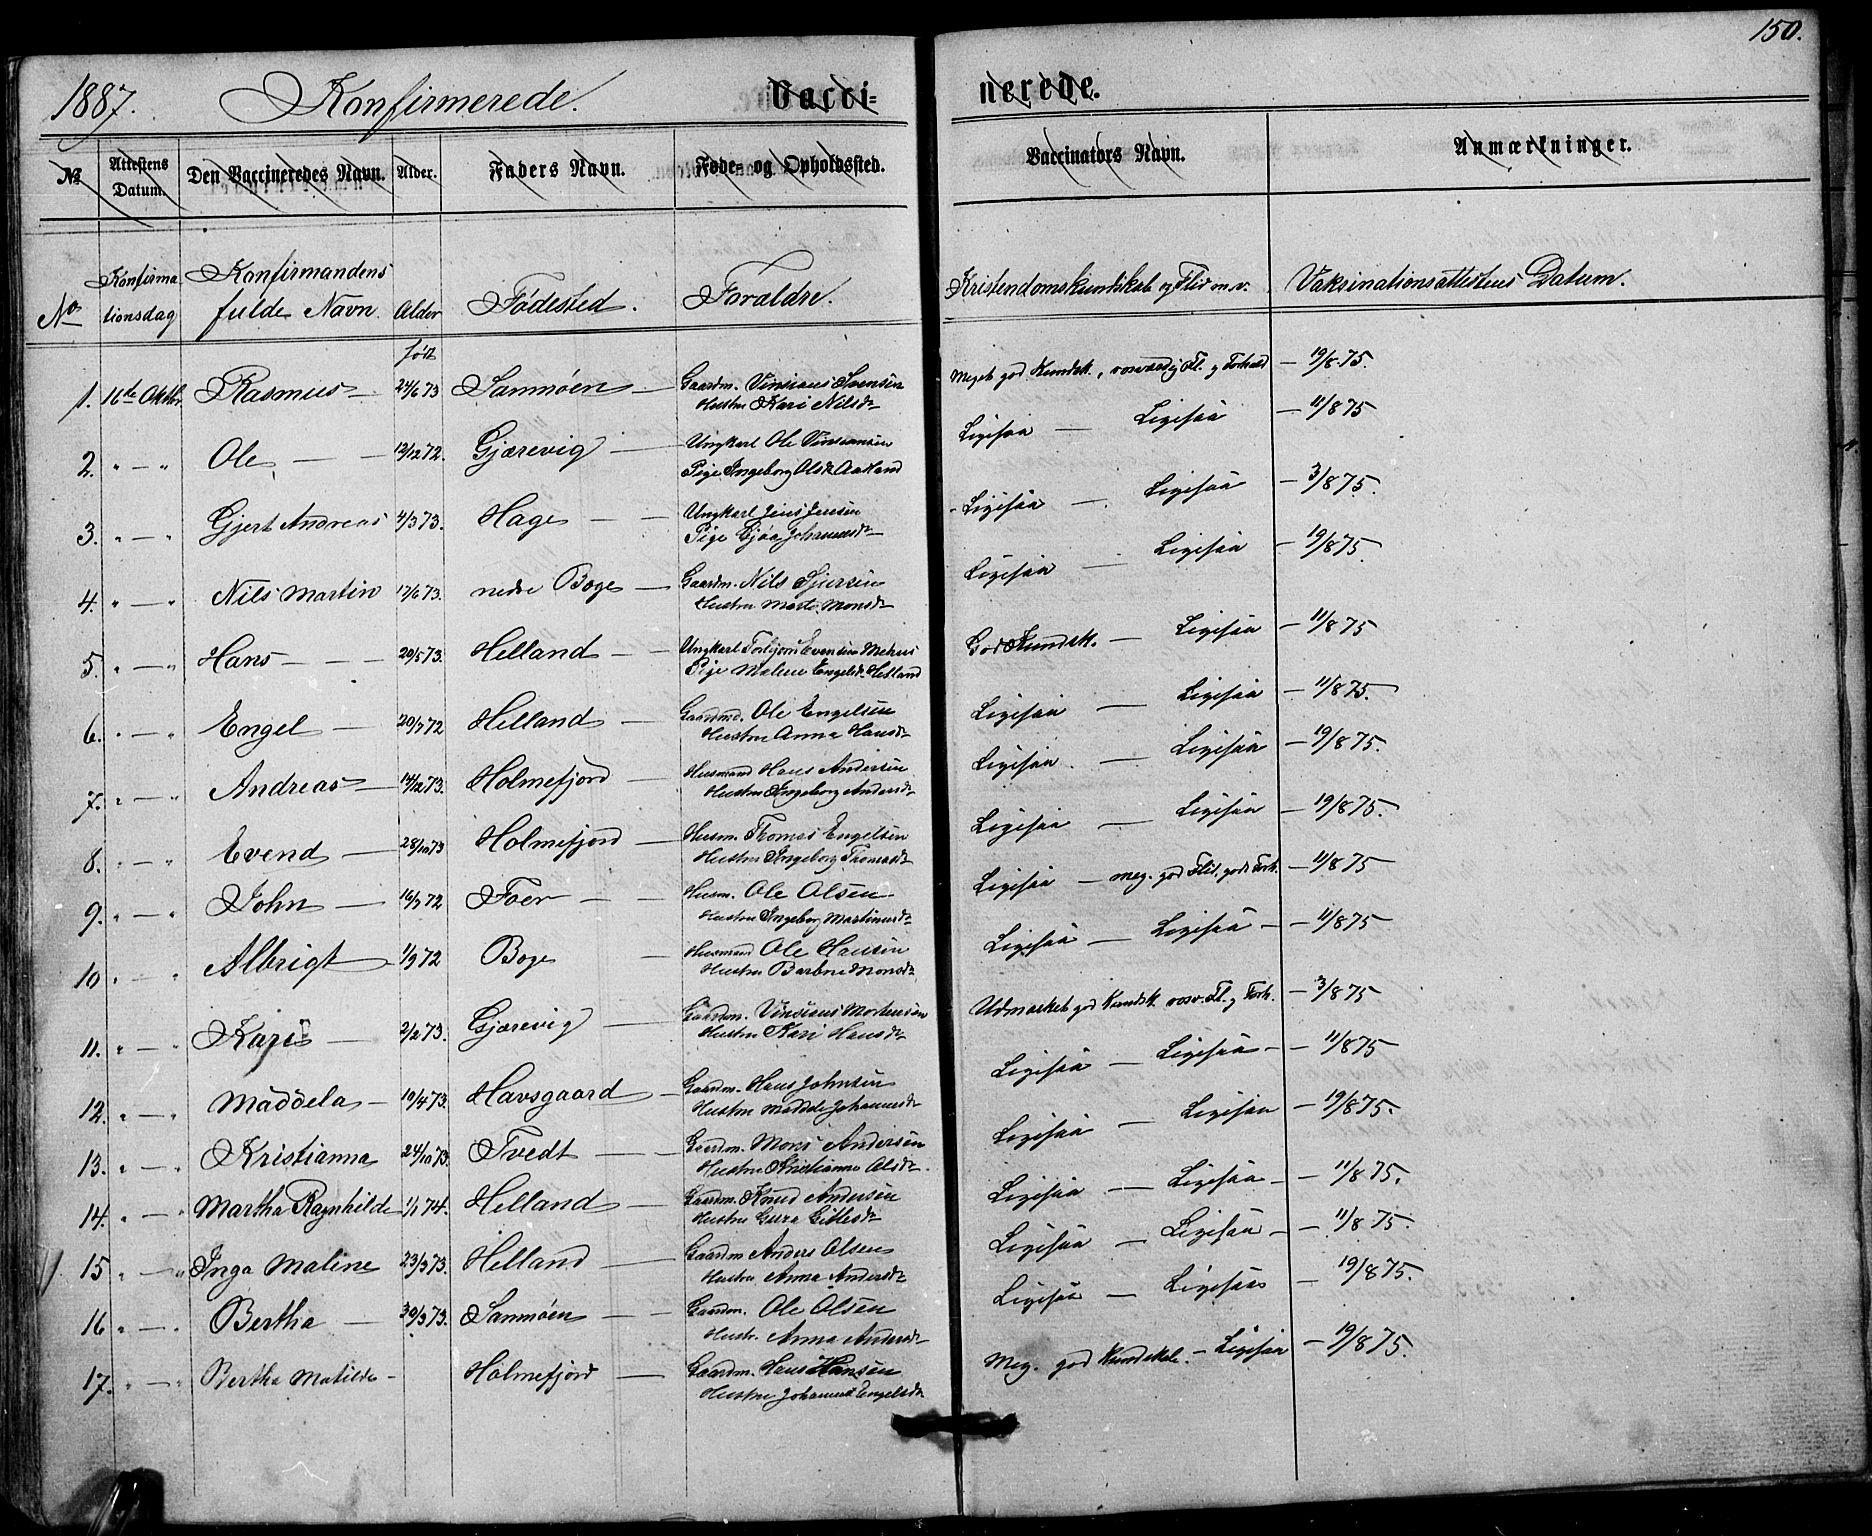 150.
1887. Konfirmerede. Vacci= nerede.
№ Attestens Datum. Den Vaccineredes Navn. Alder. Faders Navn. Føde- og Opholdssted. Vaccinators Navn. Anmærkninger.
No Konfirmationsdag Konfirmandens fulde Navn Alder Fødested. Forældre. Kristendomskundskab og Flid m.v. Vaksinationsattestens Datum.
født
1. 16de Oktbr. Rasmus — 24/6 73 Sammøen — Gaardm. Vinsians Svensen Meget god Kundsk., rosværdig Fl. g Forhold — 19/8. 75.
Hustru Kari Nilsdr
2. " — " Ole — — 12/12 72. Gjærevig — Ungkarl Ole Vinsiansen Ligesaa — Ligesaa — 11/8 75
Pige Ingeborg Olsdr Aaland
3. " — " Gjert Andreas 4/3 73. Hage — — Ungkarl Jens Jensen - Ligesaa — Ligesaa — 3/8 75.
Pige Gjøa Johannesdr
4. " — " Nils Martin 17/6 73. nedre Boge — Gaardm. Nils Sjursen Ligesaa — Ligesaa — 19/8 75
Hustru Marte Monsdr
5. " — " Hans — — — 20/5 73. Helland — — Ungkarl Torbjørn Evensen Mehus God Kundsk. — Ligesaa — 11/8 75
Pige Malene Engelsdr Helland
6. " — " Engel — 20/7 72 Helland — Gaardmd. Ole Engelsen Ligesaa — Ligesaa — 11/8 75.
Hustru Anna Hansdr
7. " — " Andreas — 14/12 73. Holmefjord — Husmand Hans Andersen Ligesaa — Ligesaa — 19/8 75.
Hustru Ingeborg Andersdr
8. " — " Evend — 28/10 73 Holmefjord — Husm. Thomas Engelsen Ligesaa — Ligesaa — 19/8 75.
Hustru Ingeborg Thomasdr
9. " — " John — 16/7 72 Foer — — Husm. Ole Olsen Ligesaa — meg. god Flid, godt Forh. — 11/8 75
Hustru Ingeborg Martinusdr
10 " " Albrigt — 1/9 72 Boge — Husmand Ole Hansen Ligesaa — Ligesaa — 11/8 75
Hustru Barbru Monsdr
11. " — " Kari — 2/2 73. Gjærevig — Gaardm. Vinsians Mortensen Udmærket god Kundsk. rosv. Fl. g Forh. — 3/8 75
Hustru Kari Hansdr
12. " — " Maddela — 10/4 73. Havsgaard — Gaardm. Hans Johnsen Ligesaa — Ligesaa — — 11/8 75
Hustru Maddele Johannesdr
13. " — " Kristianna 24/10 73. Tvedt — — Gaardm. Mons Andersen Ligesaa — Ligesaa — 19/8 75.
Hustru Kristianna Olsdr.
14. " — " Martha Ragnhilde 1/1 74. Helland — Gaardm. Knud Andersen Ligesaa — Ligesaa — — 11/8 75.
Hustru Guro Gitlesdr
15 " — " Inga Maline 23/3 73. Helland — Gaardm Anders Olsen Ligesaa — Ligesaa — — 11/8 75.
Hustru Anna Andersdr
16 " — " Bertha — 30/3 73. Sammøen — — Gaardm. Ole Olsen Ligesaa — Ligesaa — 19/8 75.
Hustr. Anna Andersdr
17. " — " Bertha Matilde - Holmefjord — Gaardm. Hans Hansen Meg. god Kundskab. — Ligesaa — 19/8 75.
Hustru Johanna Engelsdr